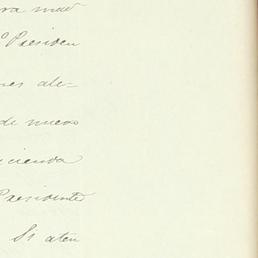 Presiden
nes ale-
de nuevo
cienda
Presidente
Si aten